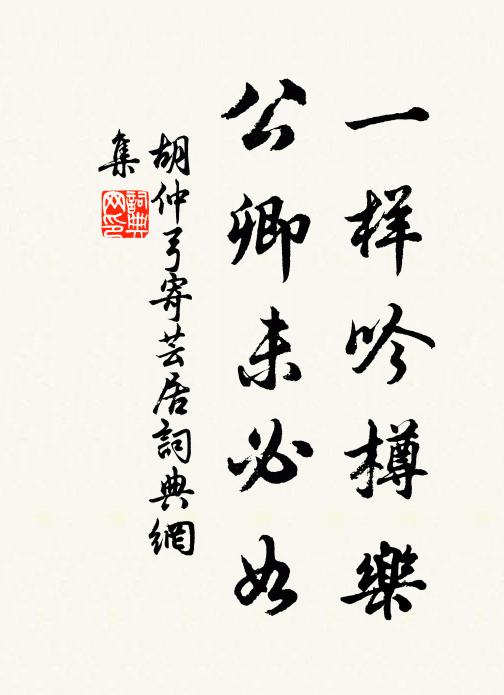 一样吟樽樂
公卿未必如
胡仲弓寄芸居詞典網
集
詞典网印